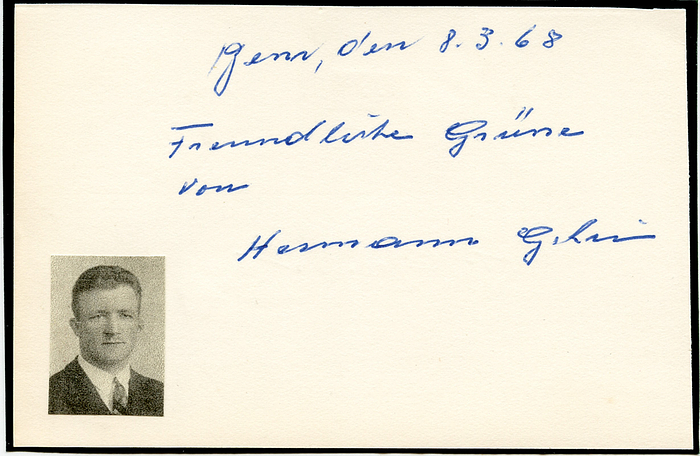 Genf, den 8.3.68
Freundliche Grüsse
von
Hermann Gehri